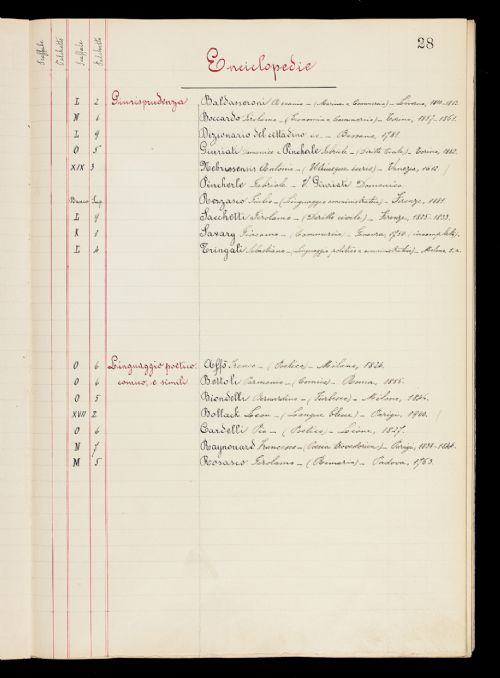 28
Scaffale Palchetto Scaffale Palchetto
Enciclopedie
L 2 Giurisprudenza Baldasseroni Ascanio – (Marina e Commercio) – Livorno, 1810-1813.
N 6 Boccardo Girolamo – (Economia e Commercio) – Torino, 1857-1861.
L 9 Dizionario del cittadino ec – Bassano, 1781.
O 5 Giuriati Domenico e Pincherle Gabriele – (Diritto Penale) – Torino, 1882.
XIX 3 Nebrissensis Antonio – (Utriusque iuris) – Venezia, 1612
Pincherle Gabriele – V. Giuriati Domenico
Sup. Rezasco Giulio – (Linguaggio amministrativo) – Firenze, 1881.
L 9 Sacchetti Girolamo – (Diritto civile) – Firenze, 1825-1833.
K 8 Savary Giacomo – (Commercio) – Ginevra, 1750 (incompleto).
L 4 Tringali Sebastiano – (Linguaggio politico e amministrativo) – Milano s.a.
O 6 Linguaggio poetico, Affò Ireneo – (Poetica) – Milano, 1824.
O 6 comico, e simili Bettoli Parmenio – (Comico) – Roma, 1885.
O 5 Biondelli Bernardino – (Furbesco) – Milano, 1846.
XVII 2 Bollack Leon – (Langue bleue) – Parigi, 1900.
O 6 Cardelli Pio – (Poetico) – Lione, 1827.
N 7 Raynouard Francesco – (Poesia trovadorica) – Parigi, 1838-1844.
M 5 Rosasco Girolamo – (Rimario) – Padova, 1763.